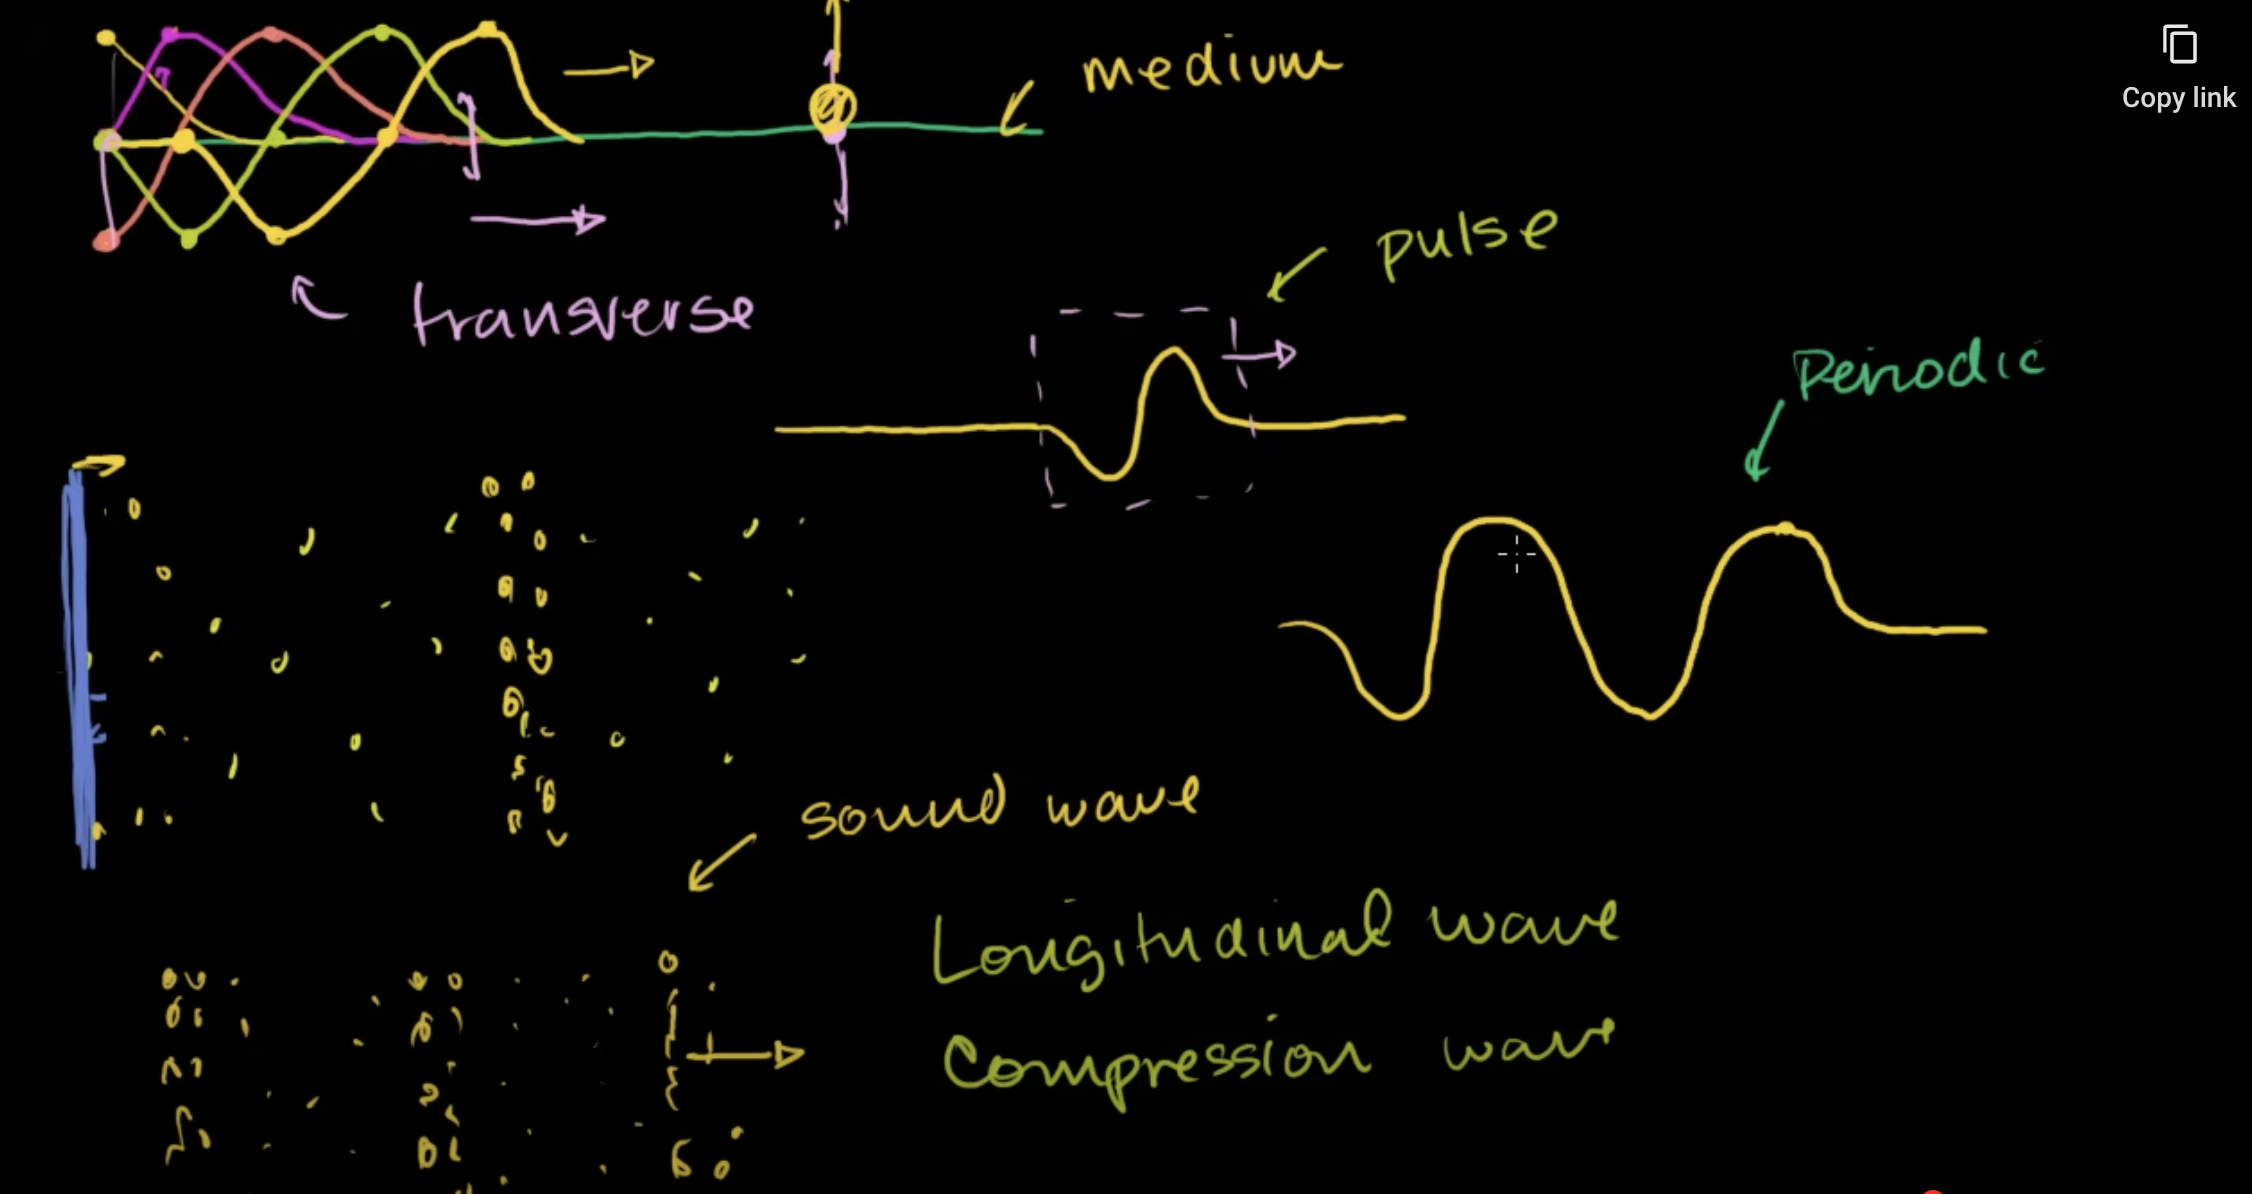 medium
Copy link
pulse
transverse
Periodic
sound wave
Longitudinal wave
Compression wave